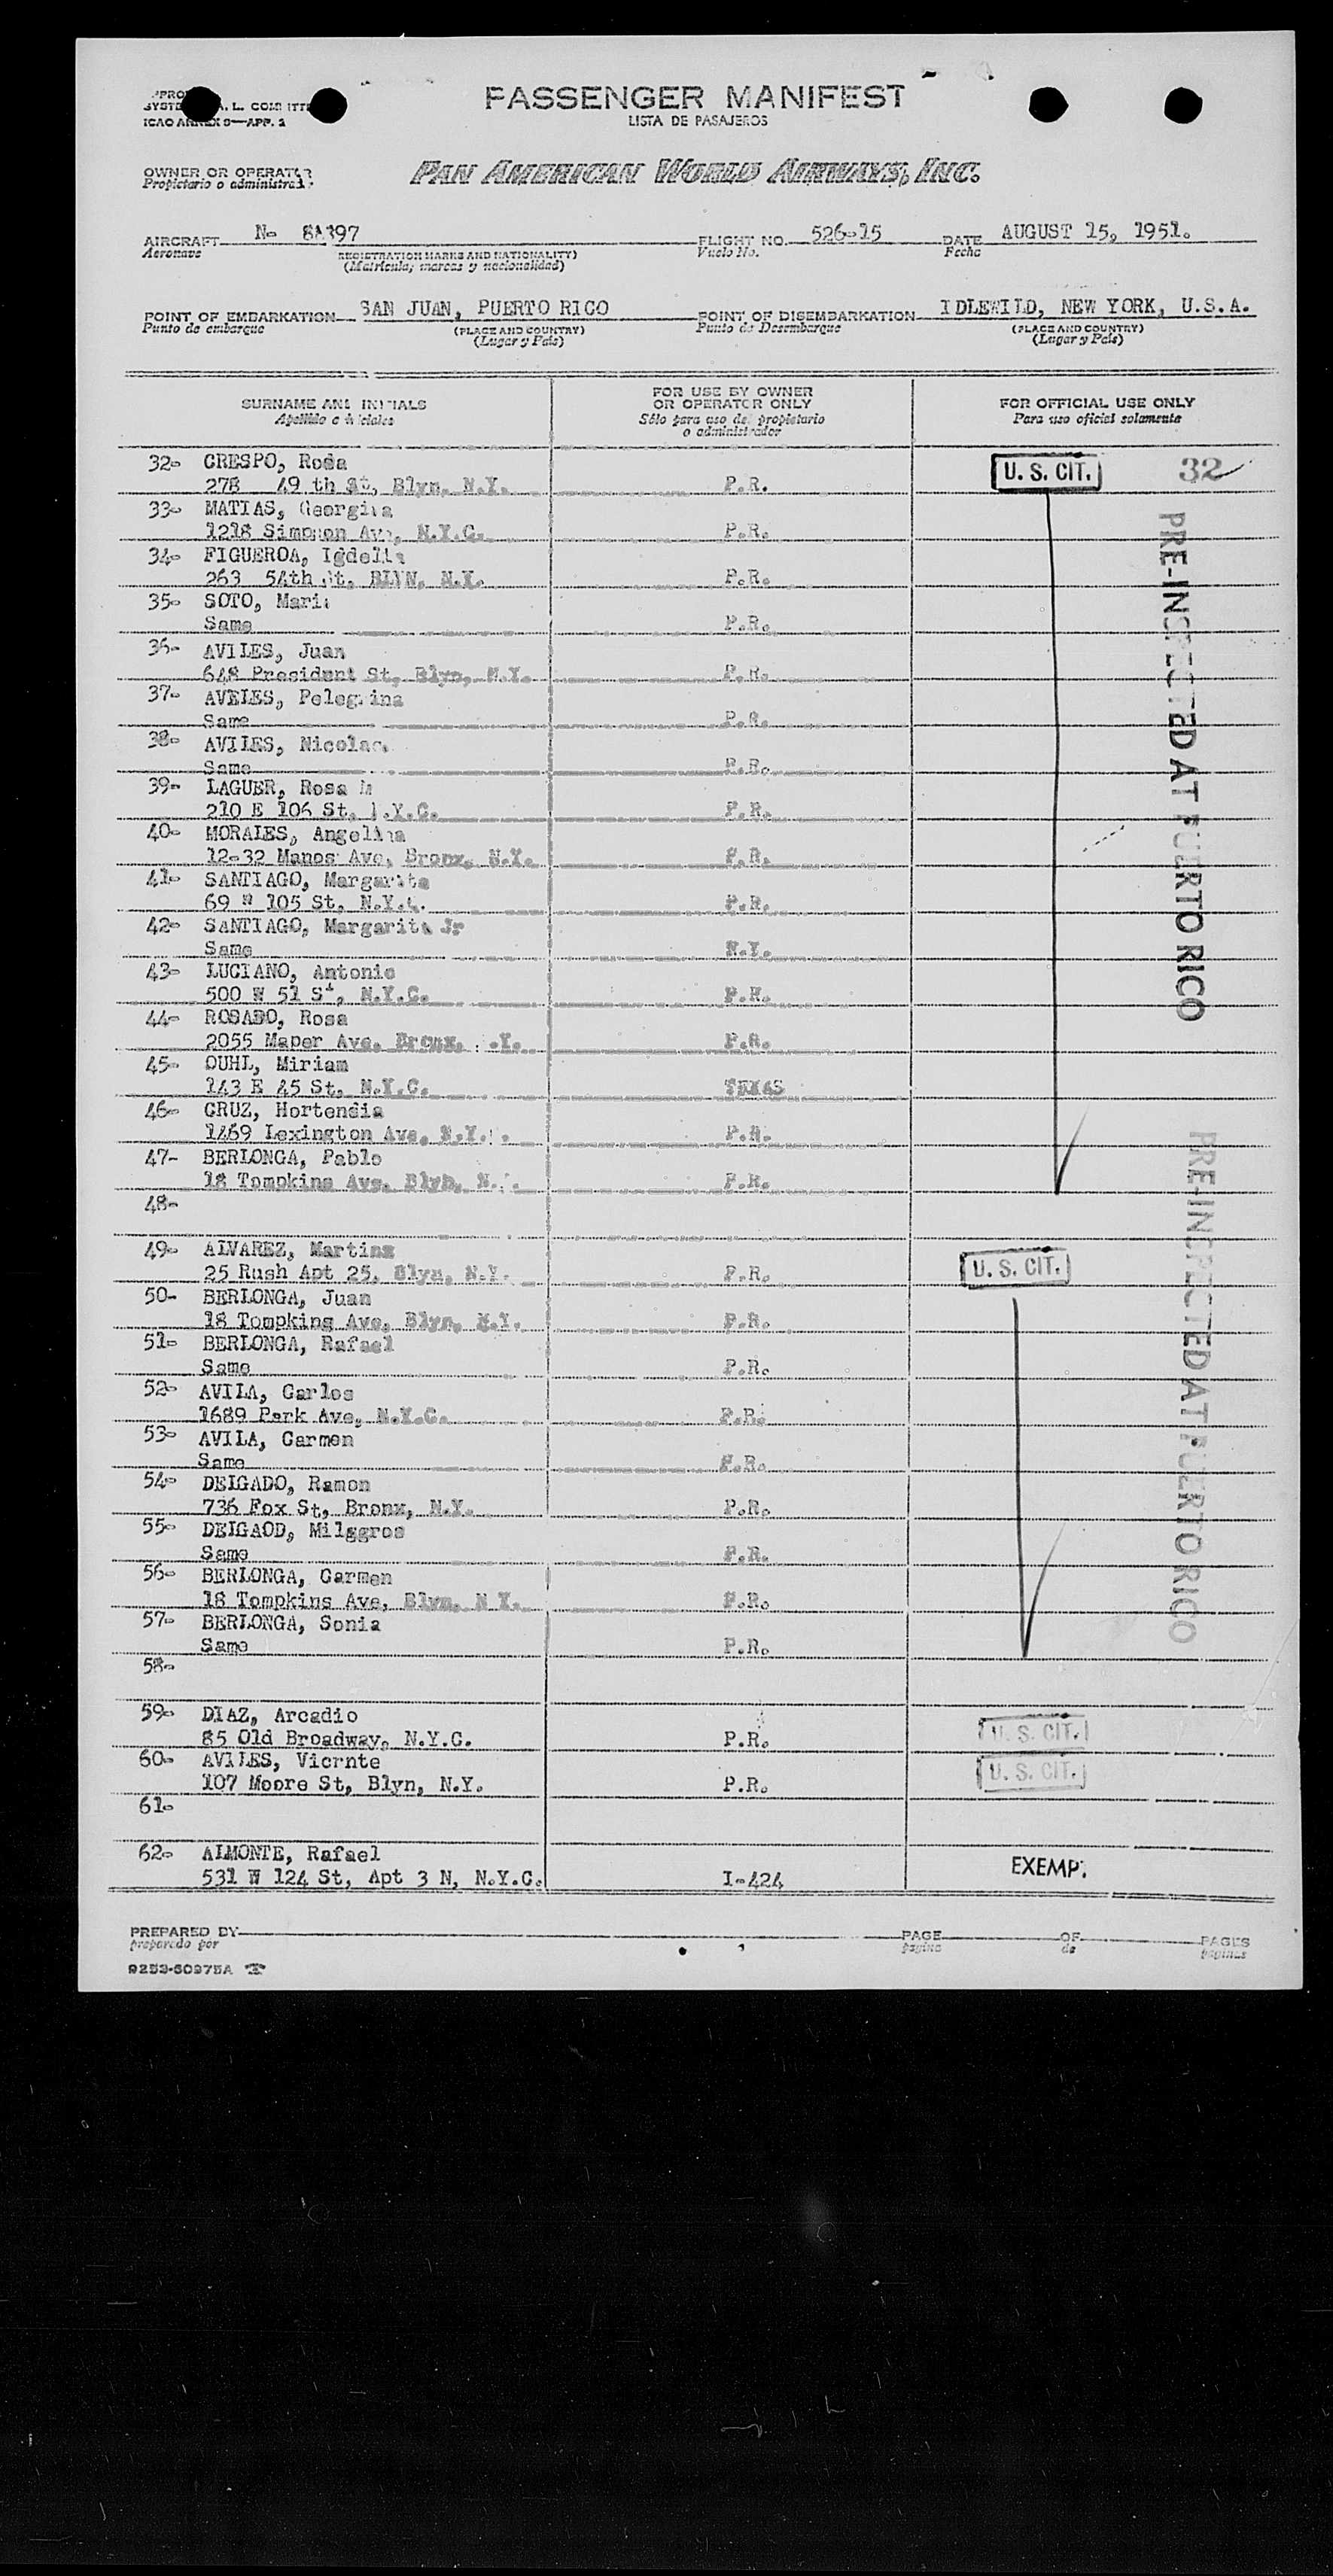 PASSENGER MANIFEST
LISTA DE PASAJEROS
ICAO ANNEX 9—APP. 2
OWNER OR OPERATOR
Propietario o administrador
PAN AMERICAN WORLD AIRWAYS, INC.
AIRCRAFT N- 8A397 FLIGHT NO. 526-15 DATE AUGUST 15, 1951.
Aeronave Vuelo No. Fecha
REGISTRATION MARKS AND NATIONALITY)
(Matrícula, marcas y nacionalidad)
POINT OF EMBARKATION SAN JUAN, PUERTO RICO POINT OF DISEMBARKATION IDLEWILD, NEW YORK, U.S.A.
Punto de embarque (PLACE AND COUNTRY) Punto de Desembarque (PLACE AND COUNTRY)
(Lugar y País) (Lugar y País)
SURNAME AND INITIALS FOR USE BY OWNER OR OPERATOR ONLY FOR OFFICIAL USE ONLY
Apellido e iniciales Sólo para uso del propietario o administrador Para uso oficial solamente
32- CRESPO, Rosa U. S. CIT. 32
278 49 th St, Blyn, N.Y. P.R.
33- MATIAS, Georgina
1218 Simpson Av, N.Y.C. P.R.
34- FIGUEROA, Igdelia
263 54th St, BLYN, N.Y. P.R.
35- SOTO, Maria
Same P.R.
36- AVILES, Juan
648 President St, Blyn, N.Y. P.R.
37- AVELES, Pelegrina
Same P.R.
38- AVILES, Nicolas
Same P.R.
39- LAGUER, Rosa M
210 E 106 St, N.Y.C. P.R.
40- MORALES, Angelina
12-32 Manos Ave, Bronx, N.Y. P.R.
41- SANTIAGO, Margarita
69 W 105 St, N.Y.C. P.R.
42- SANTIAGO, Margarita Jr
Same N.Y.
43- LUCIANO, Antonio
500 W 51 St, N.Y.C. P.R.
44- ROSADO, Rosa
2055 Maper Ave. Bronx. N.Y. P.R.
45- OUHL, Miriam
143 E 45 St, N.Y.C. TEXAS
46- CRUZ, Hortensia
1469 Lexington Ave, N.Y. P.R.
47- BERLONGA, Pablo
18 Tompkins Ave, Blyn, N.Y. P.R.
48-
49- ALVAREZ, Martina
25 Rush Apt 25, Blyn, N.Y. P.R. U. S. CIT.
50- BERLONGA, Juan
18 Tompking Ave, Blyn, N.Y. P.R.
51- BERLONGA, Rafael
Same P.R.
52- AVILA, Carlos
1689 Park Ave, N.Y.C. P.R.
53- AVILA, Carmen
Same P.R.
54- DELGADO, Ramon
736 Fox St, Bronx, N.Y. P.R.
55- DEIGAOD, Milggros
Same P.R.
56- BERLONGA, Carmen
18 Tompkins Ave, Blyn, N Y. P.R.
57- BERLONGA, Sonia
Same P.R.
58-
59- DIAZ, Arcadio
85 Old Broadway, N.Y.C. P.R. U. S. CIT.
60- AVILES, Vicrnte
107 Moore St, Blyn, N.Y. P.R. U. S. CIT.
61-
62- ALMONTE, Rafael
531 W 124 St, Apt 3 N, N.Y.C. I-424 EXEMP.
PRE-INSPECTED AT PUERTO RICO
PRE-INSPECTED AT PUERTO RICO
PREPARED BY PAGE OF PAGES
preparado por página de páginas
9253-60975A